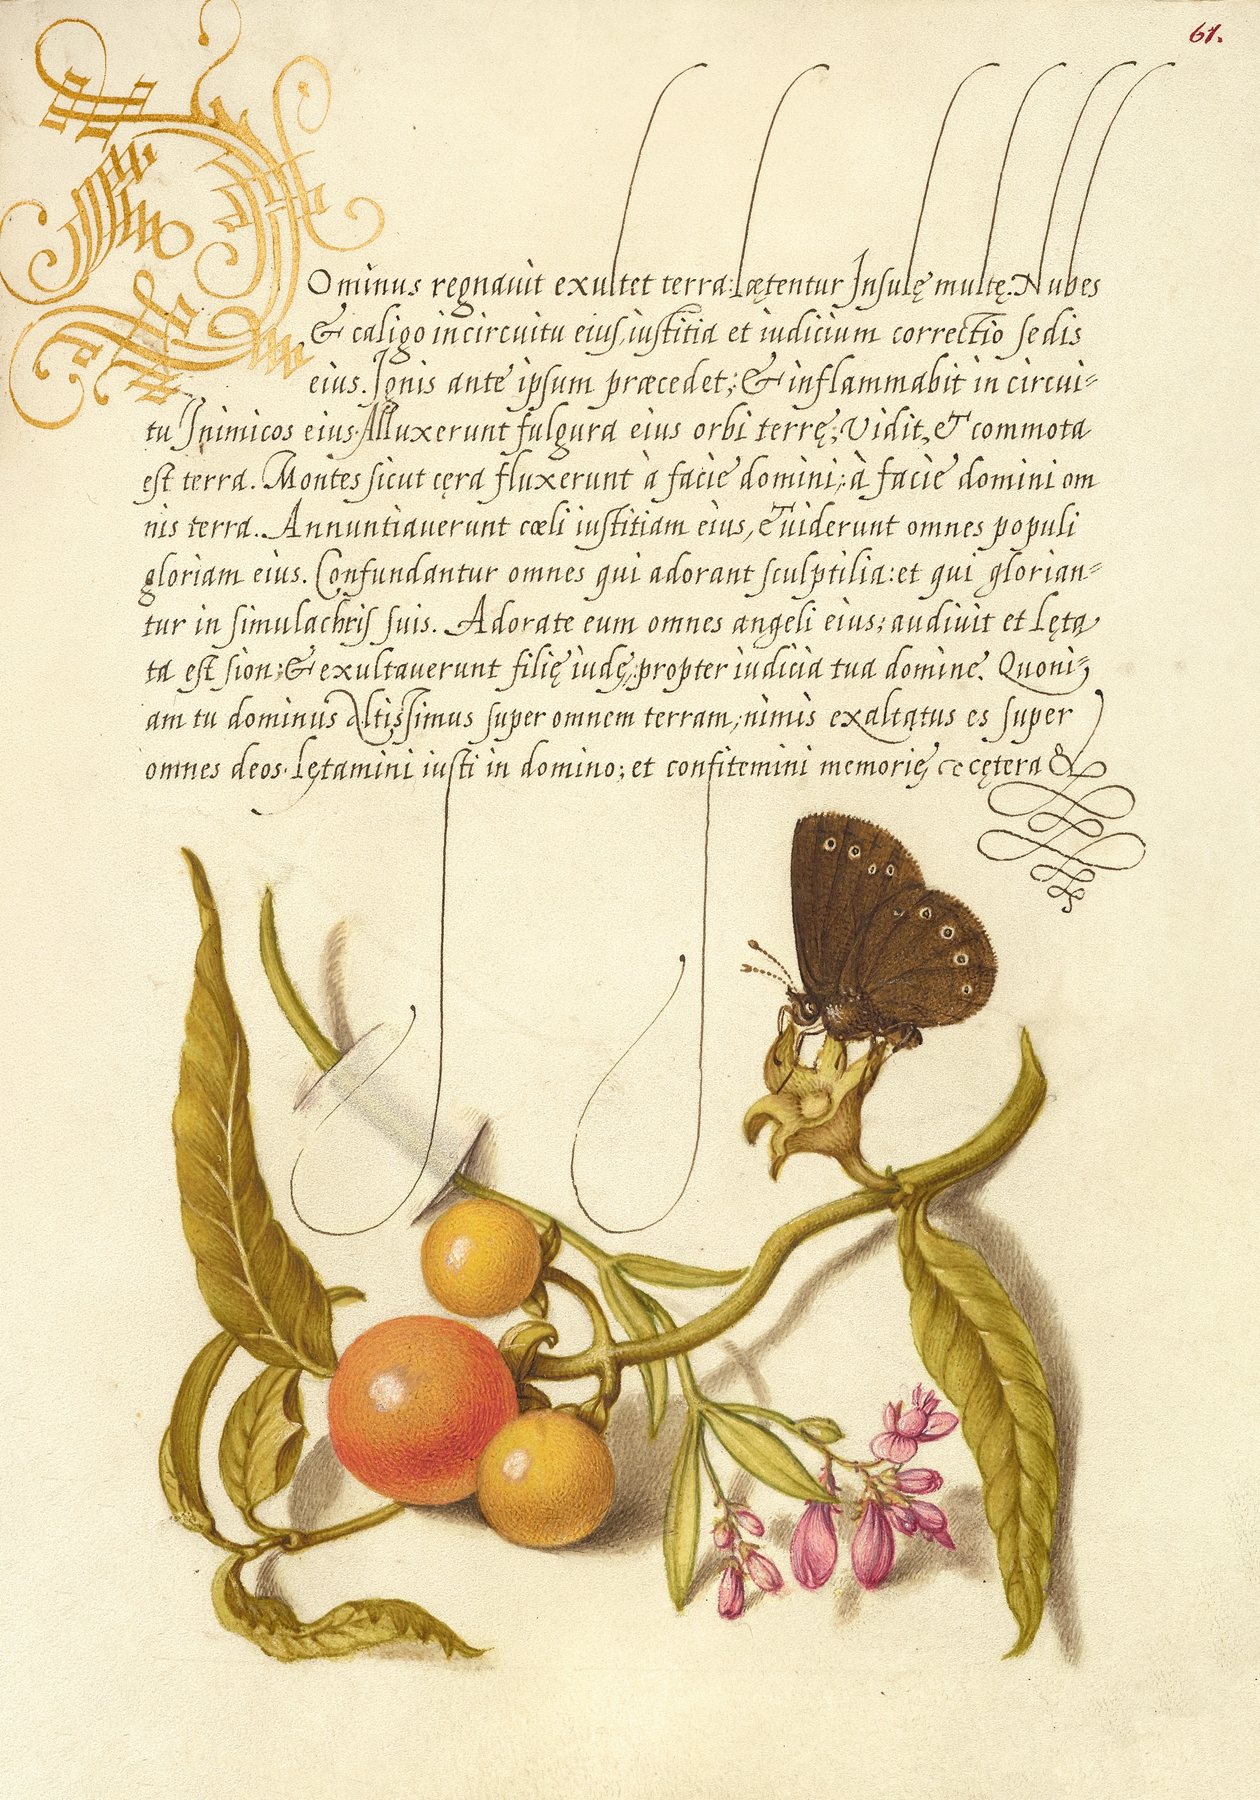 61.
Dominus regnauit exultet terra: lætentur Insulę multę. Nubes
& caligo in circuitu eius, iustitia et iudicium correctio sedis
eius. Ignis ante ipsum præcedet; & inflammabit in circui=
tu Inimicos eius. Alluxerunt fulgura eius orbi terrę; Vidit, & commota
est terra. Montes sicut cęra fluxerunt à facie domini; à facie domini om
nis terra. Annuntiauerunt cœli iustitiam eius, & uiderunt omnes populi
gloriam eius. Confundantur omnes qui adorant sculptilia: et qui glorian=
tur in simulachris suis. Adorate eum omnes angeli eius; audiuit et lęta
ta est sion; & exultauerunt filię iudę, propter iudicia tua domine. Quoni=
am tu dominus Altissimus super omnem terram, nimis exaltatus es super
omnes deos. Lętamini iusti in domino; et confitemini memorię cęcętera &